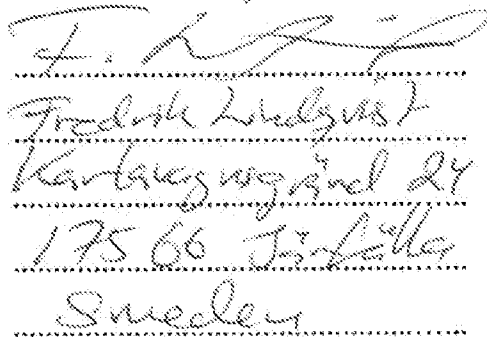 F. Lindqvist
Fredrik Lindqvist
Karlavagnsgränd 24
175 66 Järfälla
Sweden